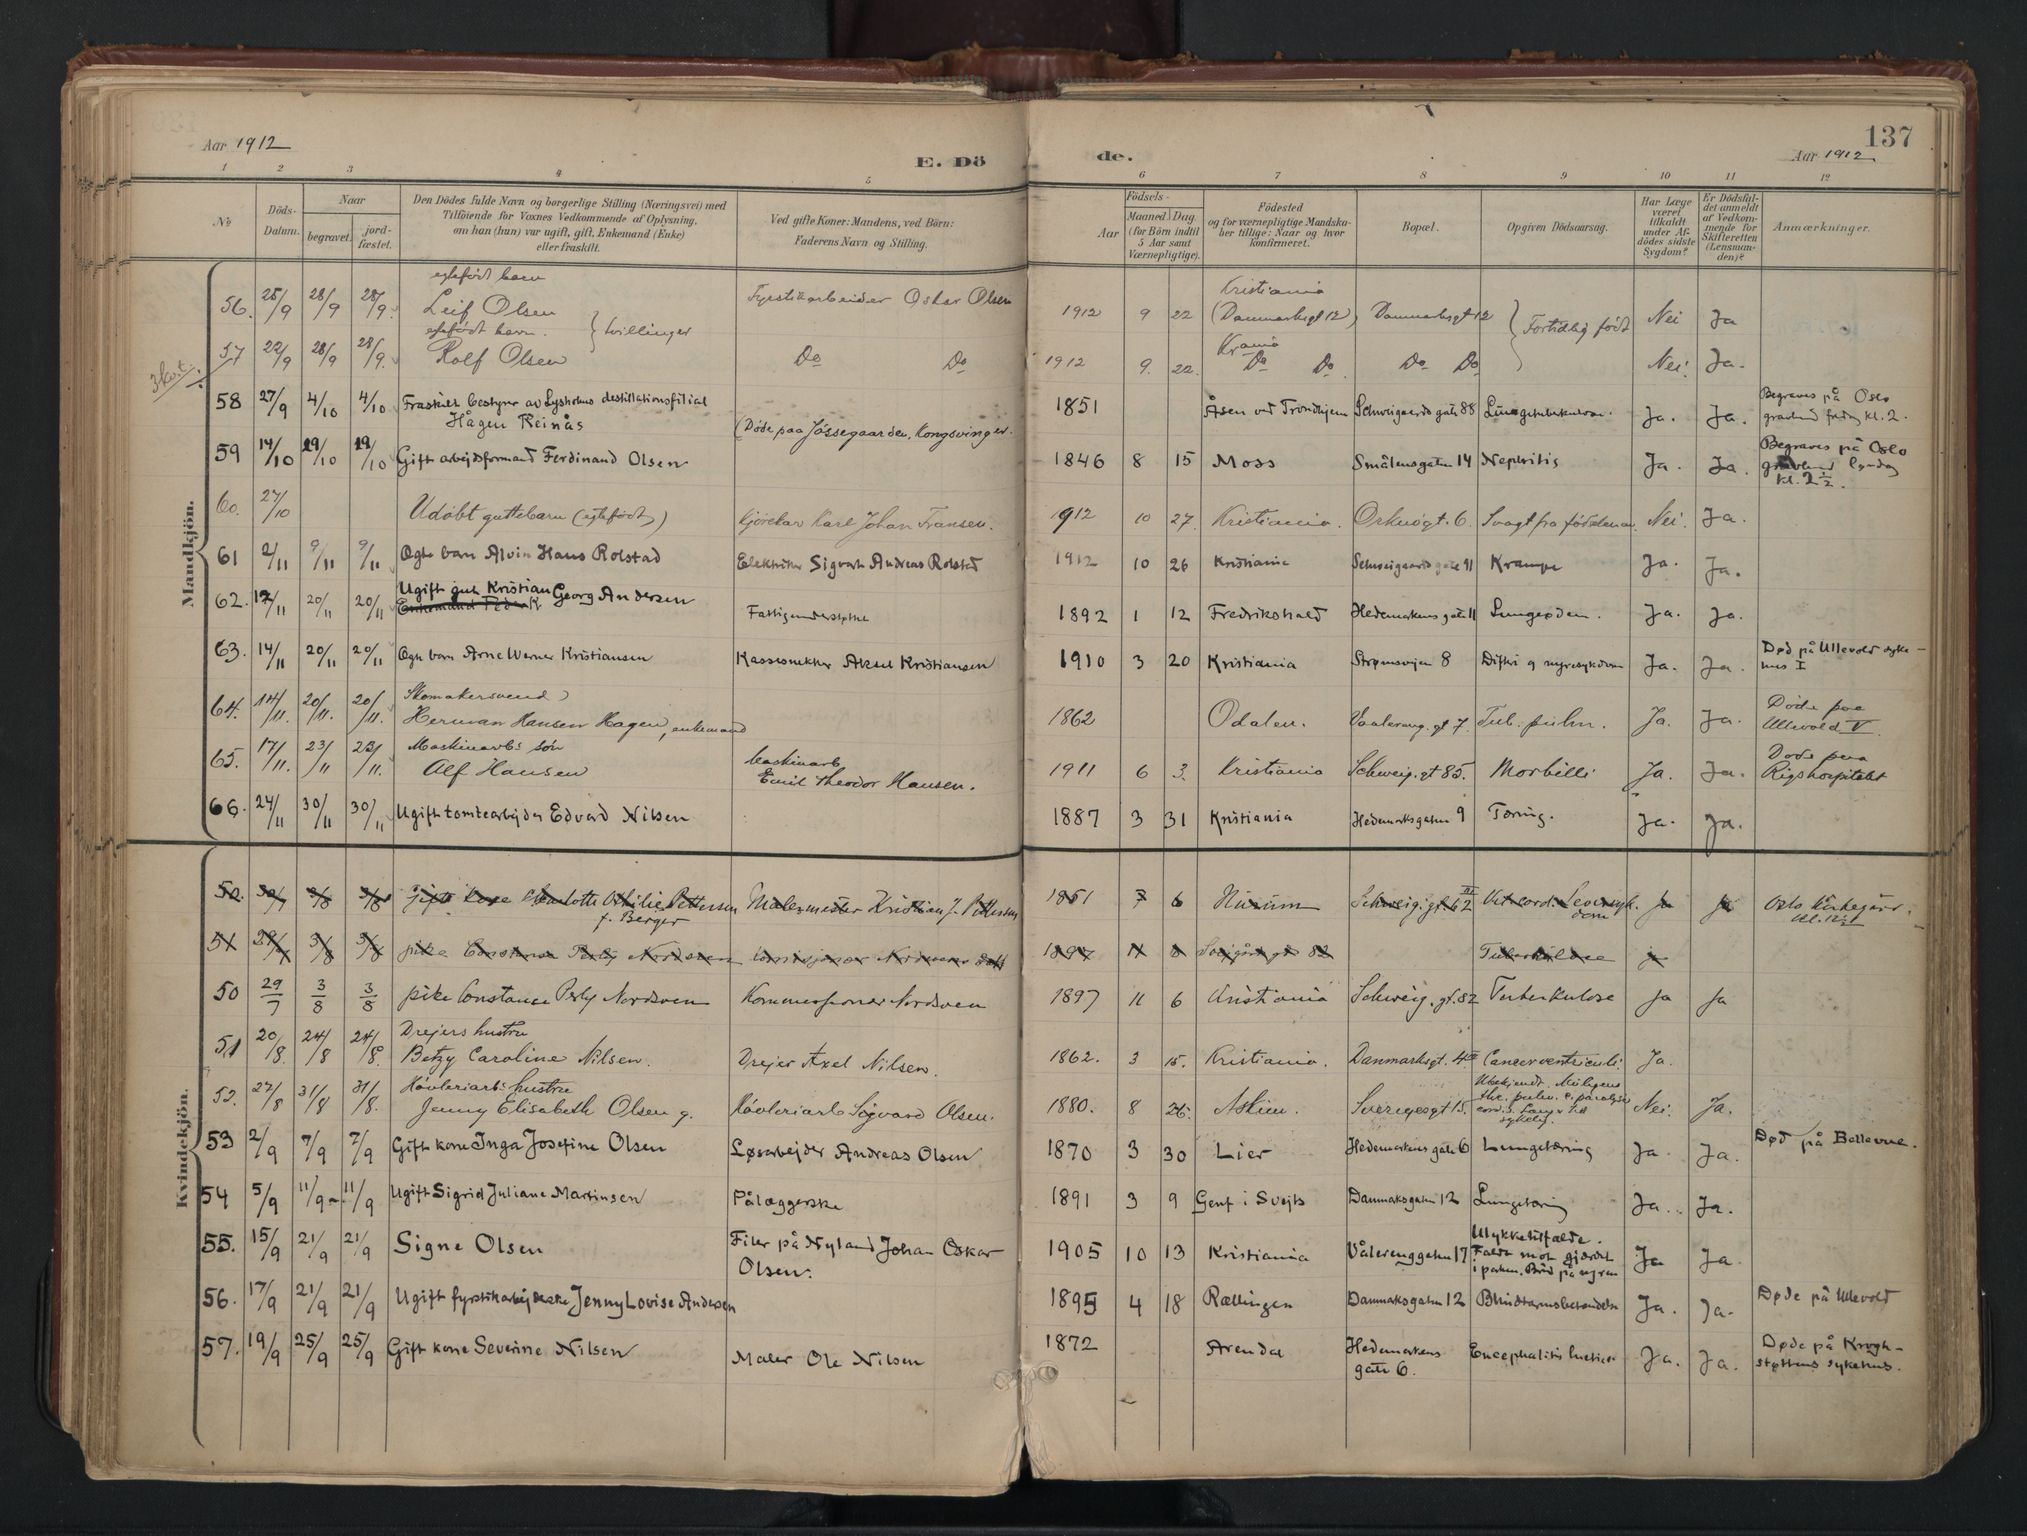 137
Aar 1912
E. Dö
de.
Aar 1912
1 2 3 4 5 6 7 8 9 10 11 12
№
Döds-
Datum.
Naar
begravet.
jord-
fæstet.
Den Dödes fulde Navn og borgerlige Stilling (Næringsvei) med
Tilföiende för Voxnes Vedkommende af Oplysning,
om han (hun) var ugift, gift, Enkemand (Enke)
eller fraskilt.
Ved gifte Koner: Mandens, ved Börn:
Faderens Navn og Stilling.
Födsels-
Aar
Maaned
Dag
(for Börn indtil
5 Aar samt
Værnepligtige).
Födested
og for værnepligtige Mandska-
ber tillige: Naar og hvor
konfirmeret.
Bopæl.
Opgiven Dödsaarsag.
Har Læge
været
tilkaldt
under Af-
dödes sidste
Sygdom?
Er Dödsfal-
det anmeldt
af Vedkom-
mende for
Skifteretten
(Lensman-
den)?
Anmærkninger.
Mandkjön.
3 kv.t.
egtefödt barn
56. 25/9 28/9 28/9. Leif Olsen Fyrstikarbeider Oskar Olsen 1912 9 22 Kristiania (Danmarksgt 12) Danmarksgt 12 Fortidlig födt Nei Ja
egtefödt barn. } tvillinger
57 22/9 28/9 28/9. Rolf Olsen Do Do 1912 9. 22. Krania Do Do. Do Do Nei. Ja.
58 27/9 4/10 4/10 Fraskilt bestyrer av Lysholms destillationsfilial
Hågen Reinås (Døde paa Jøssegaarden, Kongsvinger. 1851 Åsen ved Trondhjem Schweigaards gate 88 Lungetuberkulose. Ja. Ja. Begraves på Oslo
gravlund fredag kl. 2.
59 14/10 19/10 19/10 Gift arbejdsformand Ferdinand Olsen 1846 8 15 Moss Smålensgaten 14 Nephritis Ja. Ja. Begraves på Oslo
gravlund lørdag
kl. 2 1/2.
60. 27/10 Udöbt guttebarn (egtefödt) Kjörekar Karl Johan Fransen. 1912 10 27. Kristiania. Orknögt. 6. Svagt fra födselen av. Nei. Ja.
61 2/11 9/11 9/11 Ægte barn Alvin Hans Rolstad Elektriker Sigvart Andreas Rolstad 1912 10 26 Kristiania Schweigaards gate 91 Krampe Ja. Ja.
62. 12/11 20/11 20/11 Ugift gut Kristian Georg Andersen
Enkemand Peder K Fattigunderstøttet 1892 1 12 Fredrikshald Hedemarkens gate 11 Lungeøden. Ja. Ja.
63. 14/11 20/11 20/11 Ægte barn Arne Werner Kristiansen Kassesnekker Aksel Kristiansen 1910 3 20 Kristiania Strømsvejen 8 Difteri og nyresykdom Ja. Ja. Død på Ullevold syke-
hus I
64. 14/11. 20/11. 20/11. Skomakersvend
Herman Hansen Hagen, enkemand 1862 Odalen. Vaalereng. gt 7. Tub. pulm. Ja. Ja. Döde paa
Ullevold. V.
65. 17/11. 23/11 23/11. Maskinarb.s sön
Alf Hansen Maskinarb.
Emil Theodor Hansen. 1911 6 3. Kristiania Schweig. gt 85. Morbilli Ja. Ja. Döde paa
Rigshospitalet
66. 24/11 30/11 30/11 Ugift tomtearbejder Edvard Nilsen 1887 3 31 Kristiania Hedemarksgaten 9 Tæring. Ja. Ja.
Kvindekjön.
50. 30/7 3/8 3/8 Gift Kone Charlotte Othilie Pettersen
f. Berger Malermester Kristian J. Pettersen 1851 7 6 Hurum Schweig. gt. 62 III Vit. cord. Leversyk-
dom Ja Ja Oslo Kirkegård.
kl. 12 1/2
51 29/7 3/8 3/8 pike Constance Perly Nordsven 1897 11 6 Tuberkulose ja
50 29/7 3/8 3/8 pike Constance Perly Nordsven Kommissioner Nordsven 1897 11 6 Kristiania Schweig. gt. 82 Tuberkulose Ja Ja
51 20/8. 24/8 24/8. Drejers hustru
Betzy Caroline Nilsen. Drejer Axel Nilsen. 1862. 3 15. Kristiania. Danmarksgt. 4 III Cancer ventriculi. Ja.
52. 27/8 31/8 31/8. Hövleriarb.s hustru
Jenny Elisabeth Olsen g. Hövleriarb Sigvard Olsen. 1880. 8 26. Askim. Sverigesgt 15. Ubekjendt. Muligens
tbc. pulm. & paralysis
cordis. Lang tid
sykelig. Nei. Ja.
53 2/9 7/9 7/9 Gift kone Inga Josefine Olsen Løsarbejder Andreas Olsen 1870 3 30 Lier Hedemarkens gate 6 Lungetæring Ja. Ja. Død på Bellevue.
54 5/9 11/9 11/9 Ugift Sigrid Juliane Martinsen Pålæggerske 1891 3 9 Genf i Svejts Danmarksgaten 12 Lungetæring Ja. Ja.
55. 15/9 21/9 21/9 Signe Olsen Filer på Nyland Johan Oskar
Olsen. 1905 10 13 Kristiania Vålerenggaten 17 Ulykkestilfælde.
Faldt mot gjærdet
i parken. Brød på nyren Ja Ja.
56. 17/9 21/9 21/9 Ugift fyrstikarbejderske Jenny Lovise Andersen 1895 4 18 Rællingen Danmarksgaten 12 Blindtarmsbetændelse Ja. Ja. Døde på Ullevold
57. 19/9 25/9 25/9 Gift kone Severine Nilsen Maler Ole Nilsen 1872 Arendal Hedemarkens
gate 6. Encephalitis luetica Ja. Ja. Døde på Krogh-
støttens sykehus.